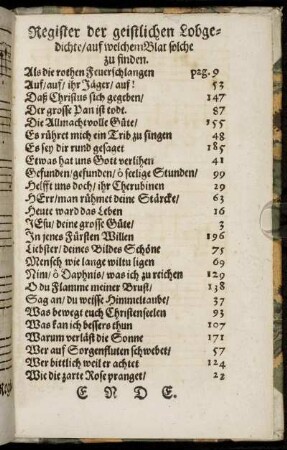 Register der geistlichen Lobge-
dichte/auf welchem Blat solche
zu finden.
Als die rothen Feuerschlangen pag. 9
Auf/auf/ ihr Jäger/ auf! 53
Daß Christus sich gegeben/ 147
Der grosse Pan ist todt. 87
Die Allmacht volle Güte/ 155
Es rühret mich ein Trib zu singen 48
Es sey dir rund gesaget 185
Etwas hat uns Gott verlihen 41
Gefunden/gefunden/ ô seelige Stunden/ 99
Helfft uns doch/ ihr Cherubinen 29
HErr/ man rühmet deine Stärcke/ 63
Heute ward das Leben 16
JEsu/ deine grosse Güte/ 3
In jenes Fürsten Willen 196
Liebster/ deines Bildes Schöne 75
Mensch wie lange wiltu ligen 69
Nim/ ô Daphnis/ was ich zu reichen 129
O du Flamme meiner Brust/ 138
Sag an/ du weisse Himmeltaube/ 37
Was bewegt euch Christenseelen 93
Was kan ich bessers thun 107
Warum verläst die Sonne 171
Wer auf Sorgenfluten schwebet/ 57
Wer bittlich weil er achtet 124
Wie die zarte Rose pranget/ 22
E N D E.